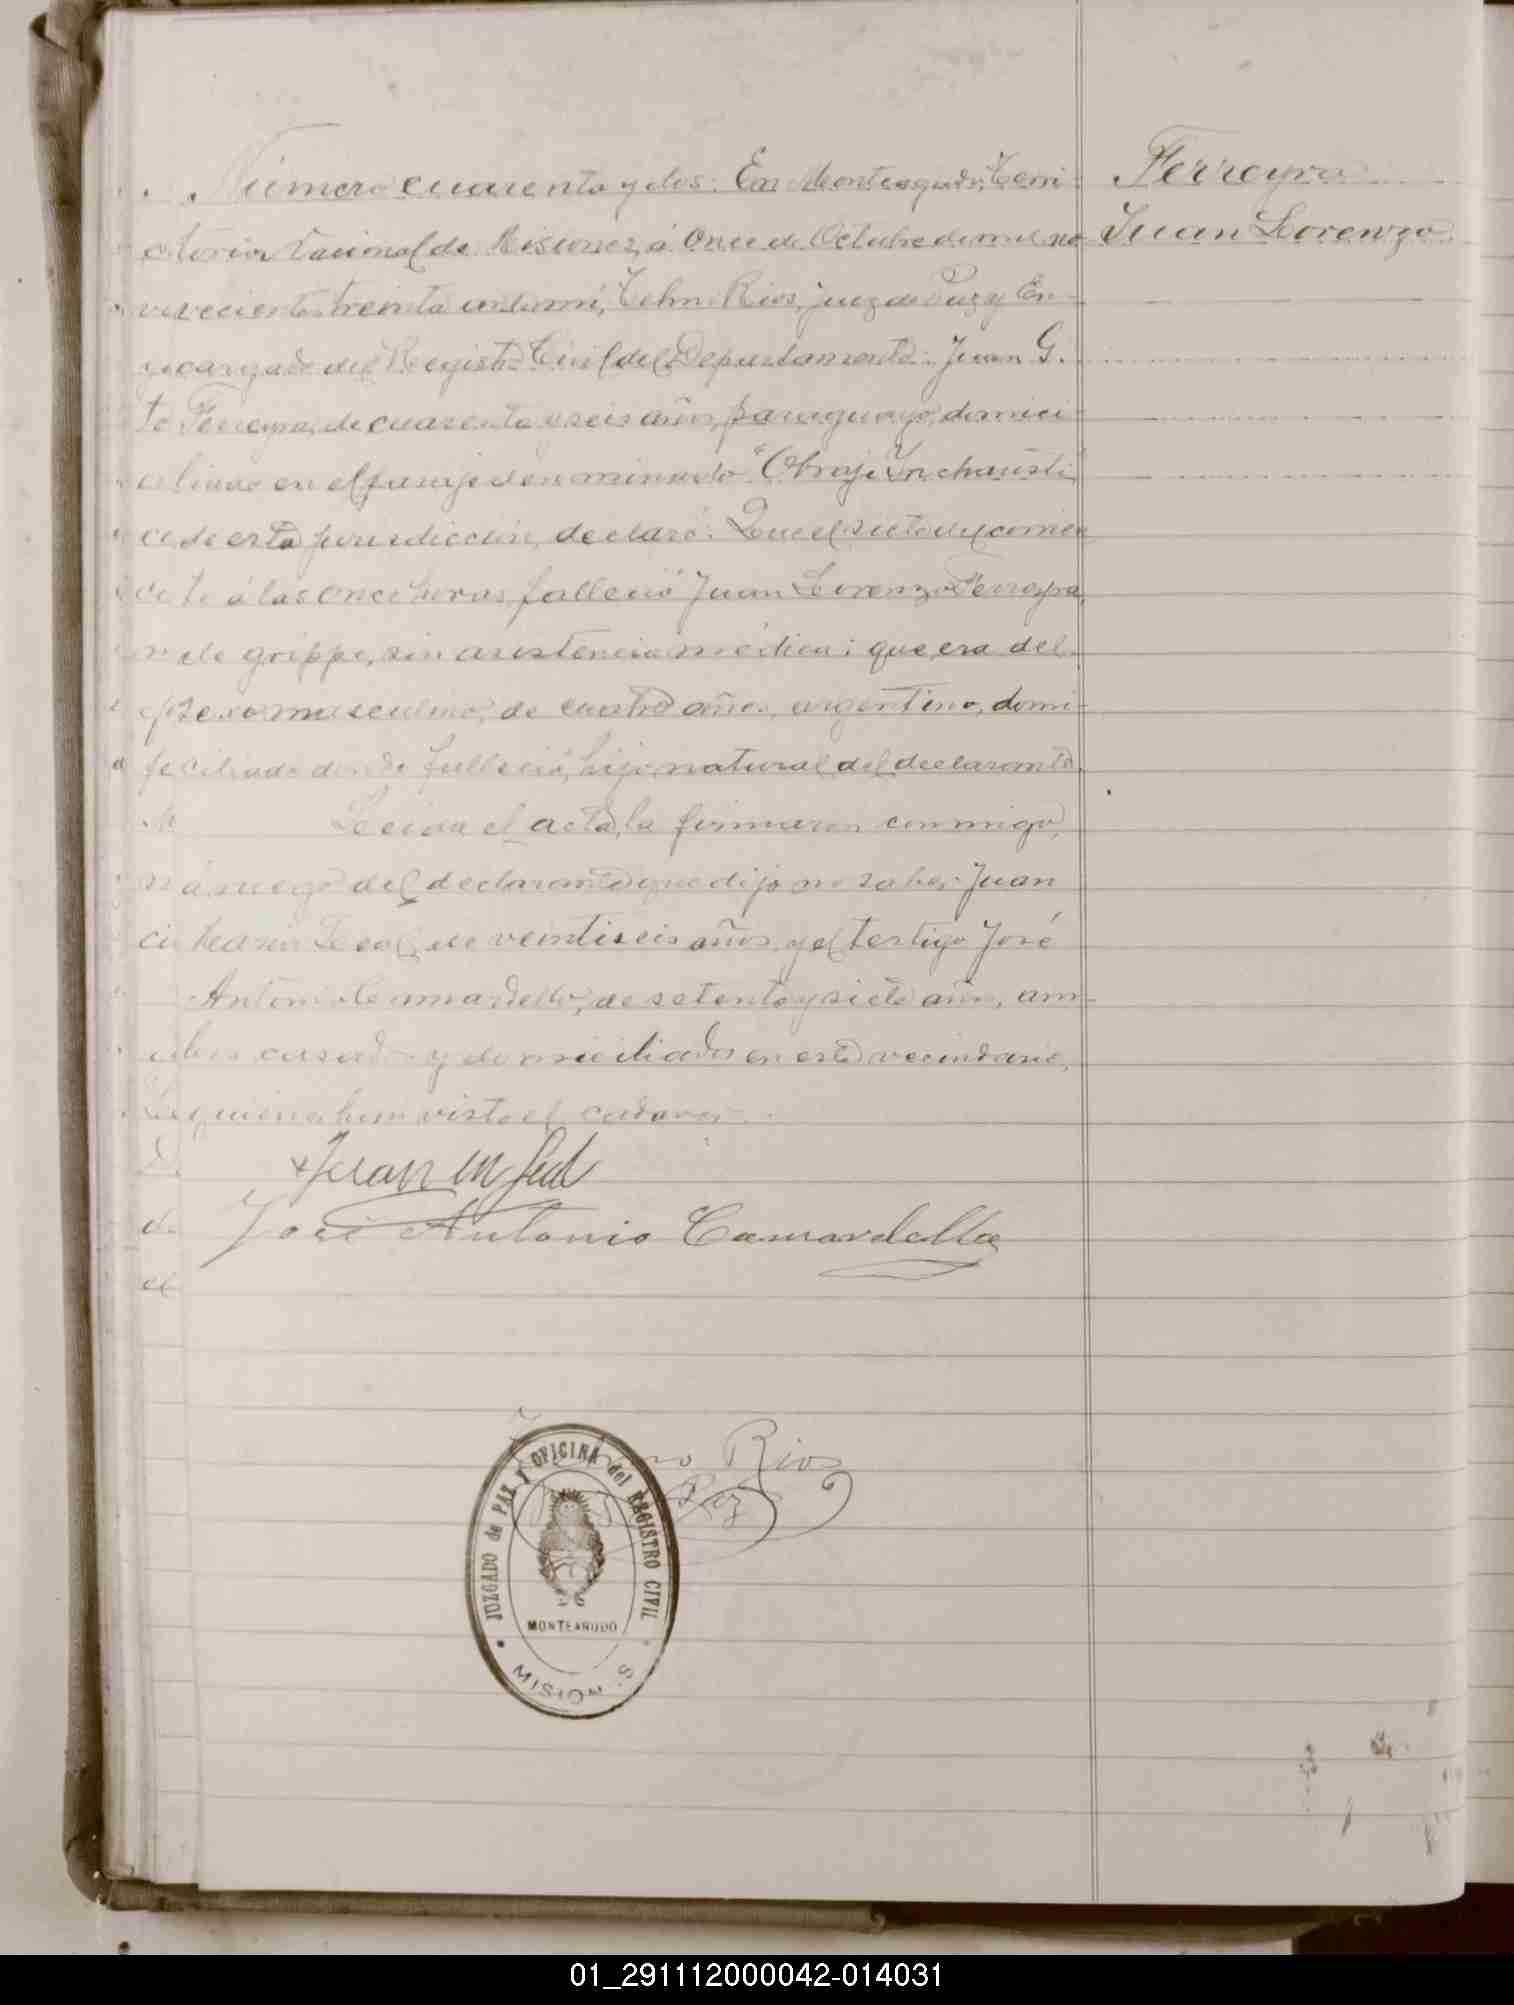 Número cuarenta y dos: En Monteagudo, Terri-
torio Nacional de Misiones, á once de Octubre de mil no-
vecientos treinta ante mí, Rios, Juez de Paz y En-
cargado del Registro Civil del Departamento: Juan G.
Ferreyra, de cuarenta y seis años, paraguayo, domici-
liado en el paraje denominado "Obraje Inchausti"
de esta jurisdicción, declaró: Que el siete del corrien
te á las once horas falleció Juan Lorenzo Ferreyra,
de grippe, sin asistencia médica; que era del
sexo masculino, de cuatro años, argentino, domi-
ciliado donde falleció, hijo natural del declarante.
Leida el acta, la firmaron conmigo,
á ruego del declarante que dijo no saber Juan
Leal, de veintiseis años, y el testigo José
Antonio Camardella, de setenta y siete años, am-
bos casados y domiciliados en este vecindario,
quienes han visto el cadaver.
Juan
José Antonio Camardella
Rios
JUZGADO de PAZ Y OFICINA del REGISTRO CIVIL
MONTEAGUDO
MISIONES
Ferreyra
Juan Lorenzo
01_291112000042-014031